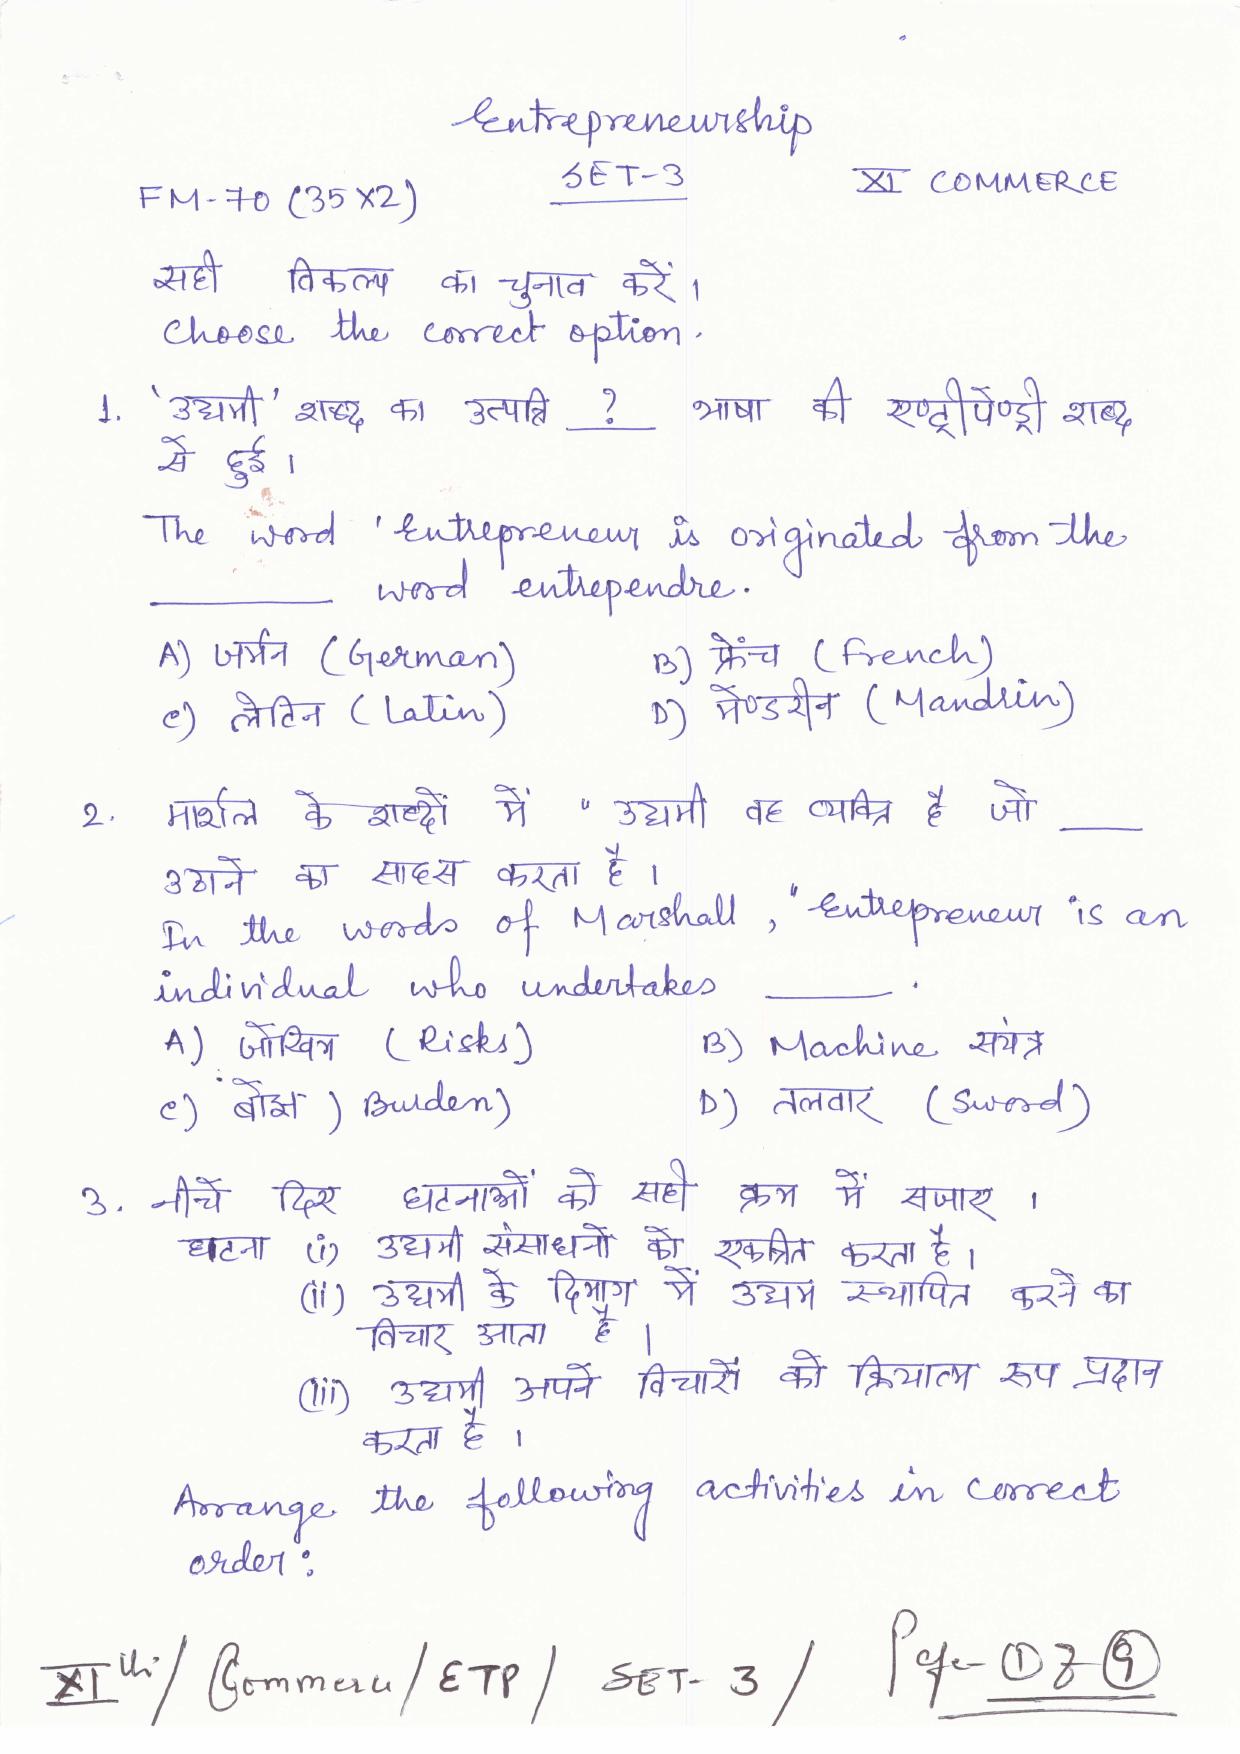 Entrepreneurship
FM-70 (35X2) SET-3 XI COMMERCE
सही विकल्प का चुनाव करें।
Choose the correct option.
1. 'उद्यमी' शब्द का उत्पत्ति ? भाषा की एण्ट्रीपेंण्ड्री शब्द
से हुई।
The word 'Entrepreneur is originated from the
________ word entrependre.
A) जर्मन (German) B) फ्रेंच (French)
C) लेटिन (Latin) D) मेण्डरीन (Mandrin)
2. मार्शल के शब्दों में " उद्यमी वह व्यक्ति है जो ____
उठाने का साहस करता है।
In the words of Marshall, "Entrepreneur is an
individual who undertakes ______.
A) जोखिम (Risks) B) Machine संयंत्र
C) बोझ ) Burden) D) तलवार (Sword)
3. नीचे दिए घटनाओं को सही क्रम में सजाए।
घटना (i) उद्यमी संसाधनों को एकत्रित करता है।
(ii) उद्यमी के दिमाग में उद्यम स्थापित करने का
विचार आता है।
(iii) उद्यमी अपने विचारों को क्रियात्म रूप प्रदान
करता है।
Arrange the following activities in correct
order:
XIth/ Commerce/ ETP/ SET-3/ Page-1 of 9